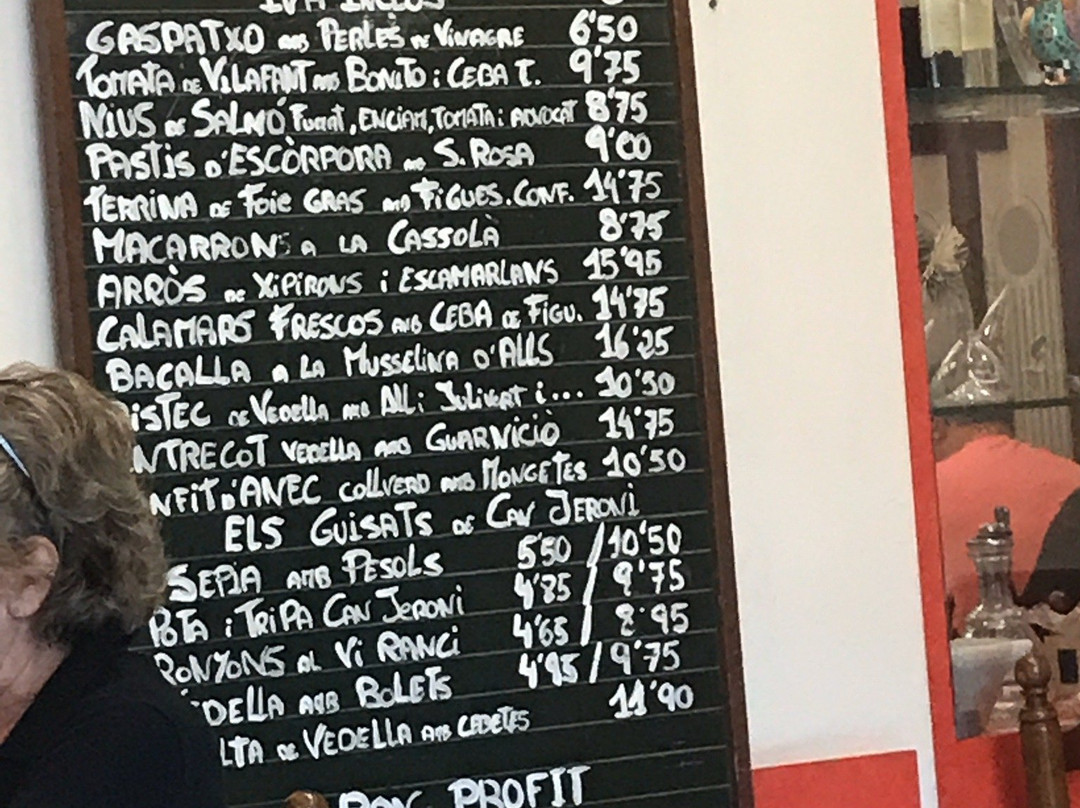 IVA INCLÒS
GASPATXO AMB PERLES DE VINAGRE 6'50
TOMATA DE VILAFANT AMB BONITO i CEBA T. 9'75
NIUS DE SALMÓ FUMAT, ENCIAM, TOMATA i ADVOCAT 8'75
PASTIS D'ESCÒRPORA AMB S. ROSA 9'00
TERRINA DE FOIE GRAS AMB FIGUES. CONF. 14'75
MACARRONS A LA CASSOLÀ 8'75
ARRÒS DE XIPIRONS i ESCAMARLANS 15'95
CALAMARS FRESCOS AMB CEBA DE FIGU. 14'75
BACALLA A LA MUSSELINA D'ALLS 16'25
BISTEC DE VEDELLA AMB ALL i JULIVERT i... 10'50
ENTRECOT VEDELLA AMB GUARNICIÒ 14'75
NFIT D'ANEC COLLVERD AMB MONGETES 10'50
ELS GUISATS DE CAN JERONI
SEPIA AMB PESOLS 5'50 / 10'50
POTA i TRIPA CAN JERONI 4'85 / 9'75
RONYONS AL VI RANCI 4'65 / 8'95
DELLA AMB BOLETS 4'95 / 9'75
LTA DE VEDELLA AMB CEPETES 11'90
BON PROFIT